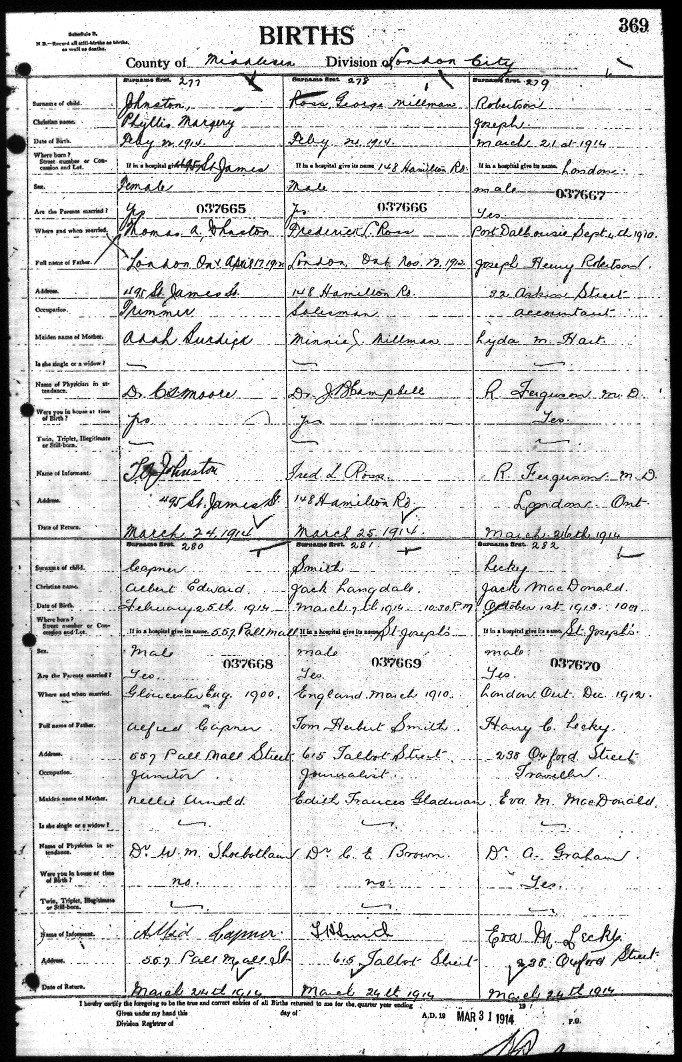 Schedule B.
N.B.—Record all still-births as births, as well as deaths.
BIRTHS
369
County of Middlesex Division of London City
Surname first. 277 Surname first. 278 Surname first. 279
Surname of child. Johnston, Ross, George Millman Robertson
Christian name. Phyllis Margery Joseph
Date of Birth. Feby 1914. Feby 1914. March 21st 1914
Where born? Street number or Concession and Lot. If in a hospital give its name St James If in a hospital give its name 148 Hamilton Rd. If in a hospital give its name. London
Sex. Female Male male
Are the Parents married? 037665 037666 Yes 037667
Where and when married. Thomas A. Johnston Frederick Ross Port Dalhousie Sept 4th 1910.
Full name of Father. London Ont April 17 London Ont Nov. 1912 Joseph Henry Robertson
Address. 495 St. James St. 148 Hamilton Rd. 22 Askin Street
Occupation. Trimmer Salesman accountant
Maiden name of Mother. Adah Burdick Minnie Millman Lyda M. Hart
Is she single or a widow? — — —
Name of Physician in attendance. Dr. Moore Dr. J B Campbell R Ferguson M.D.
Were you in house at time of Birth? yes yes Yes.
Twin, Triplet, Illegitimate or Still-born. — — —
Name of Informant. Johnston Fred L Ross R. Ferguson M.D.
Address 495 St. James St 148 Hamilton Rd. London Ont
Date of Return. March 24, 1914 March 25, 1914 March 26th 1914
Surname first. 280 Surname first. 281 Surname first. 282
Surname of child. Capner Smith Lecky
Christian name. Albert Edward. Jack Langdale Jack MacDonald.
Date of Birth. February 25th 1914 March 7th 1914 10.30 P.M October 1st 1913
Where born? Street number or Concession and Lot. If in a hospital give its name. 557 Pall Mall If in a hospital give its name St Joseph's If in a hospital give its name. St. Joseph's.
Sex. Male male male
Are the Parents married? Yes. 037668 Yes. 037669 Yes. 037670
Where and when married. Gloucester Eng. 1900. England March 1910. London Ont Dec. 1912.
Full name of Father. Alfred Capner Tom Herbert Smith Harry C. Lecky
Address. 557 Pall Mall Street 615 Talbot Street 238 Oxford Street
Occupation. Janitor Journalist. Traveller
Maiden name of Mother. Nellie Arnold. Edith Frances Gladman Eva M. MacDonald
Is she single or a widow? — — —
Name of Physician in attendance. Dr W. M. Shoebotham Dr C. E Brown. Dr A. Graham
Were you in house at time of Birth? no. no. Yes.
Twin, Triplet, Illegitimate or Still-born. — — —
Name of Informant. Alfred Capner. T H Smith Eva M. Lecky.
Address 557 Pall Mall St 615 Talbot Street 238 Oxford Street
Date of Return. March 24th 1914 March 24th 1914 March 24th 1914
I hereby certify the foregoing to be the true and correct entries of all Births returned to me for the quarter year ending 19
Given under my hand this day of A.D. 19 MAR 31 1914
Division Registrar of P.O.